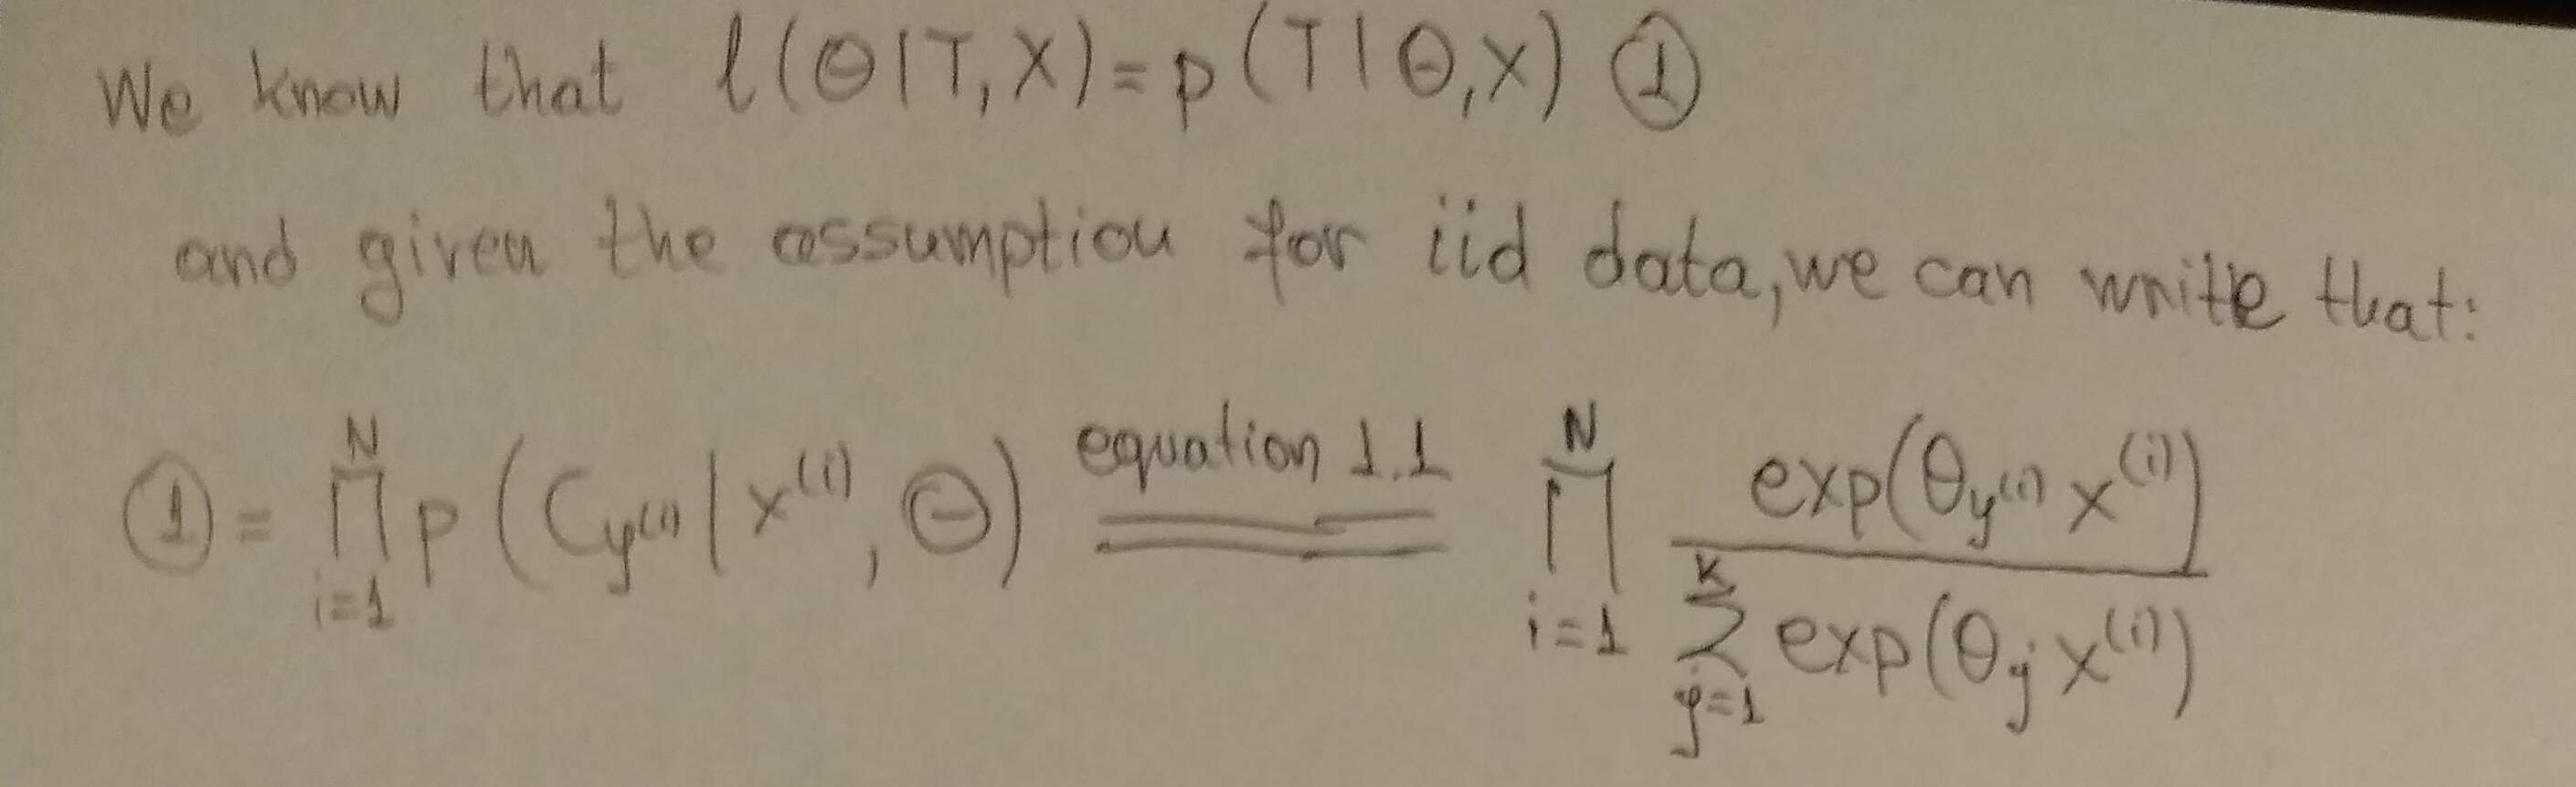 We know that ℓ(Θ|T,X)=p(T|Θ,X) ①
and given the assumption for iid data, we can write that:
① = ∏_{i=1}^{N} p(C_{y^{(i)}} | x^{(i)}, Θ) \overset{equation 1.1}{=} ∏_{i=1}^{N} \frac{exp(θ_{y^{(i)}} x^{(i)})}{∑_{j=1}^{K} exp(θ_j x^{(i)})}